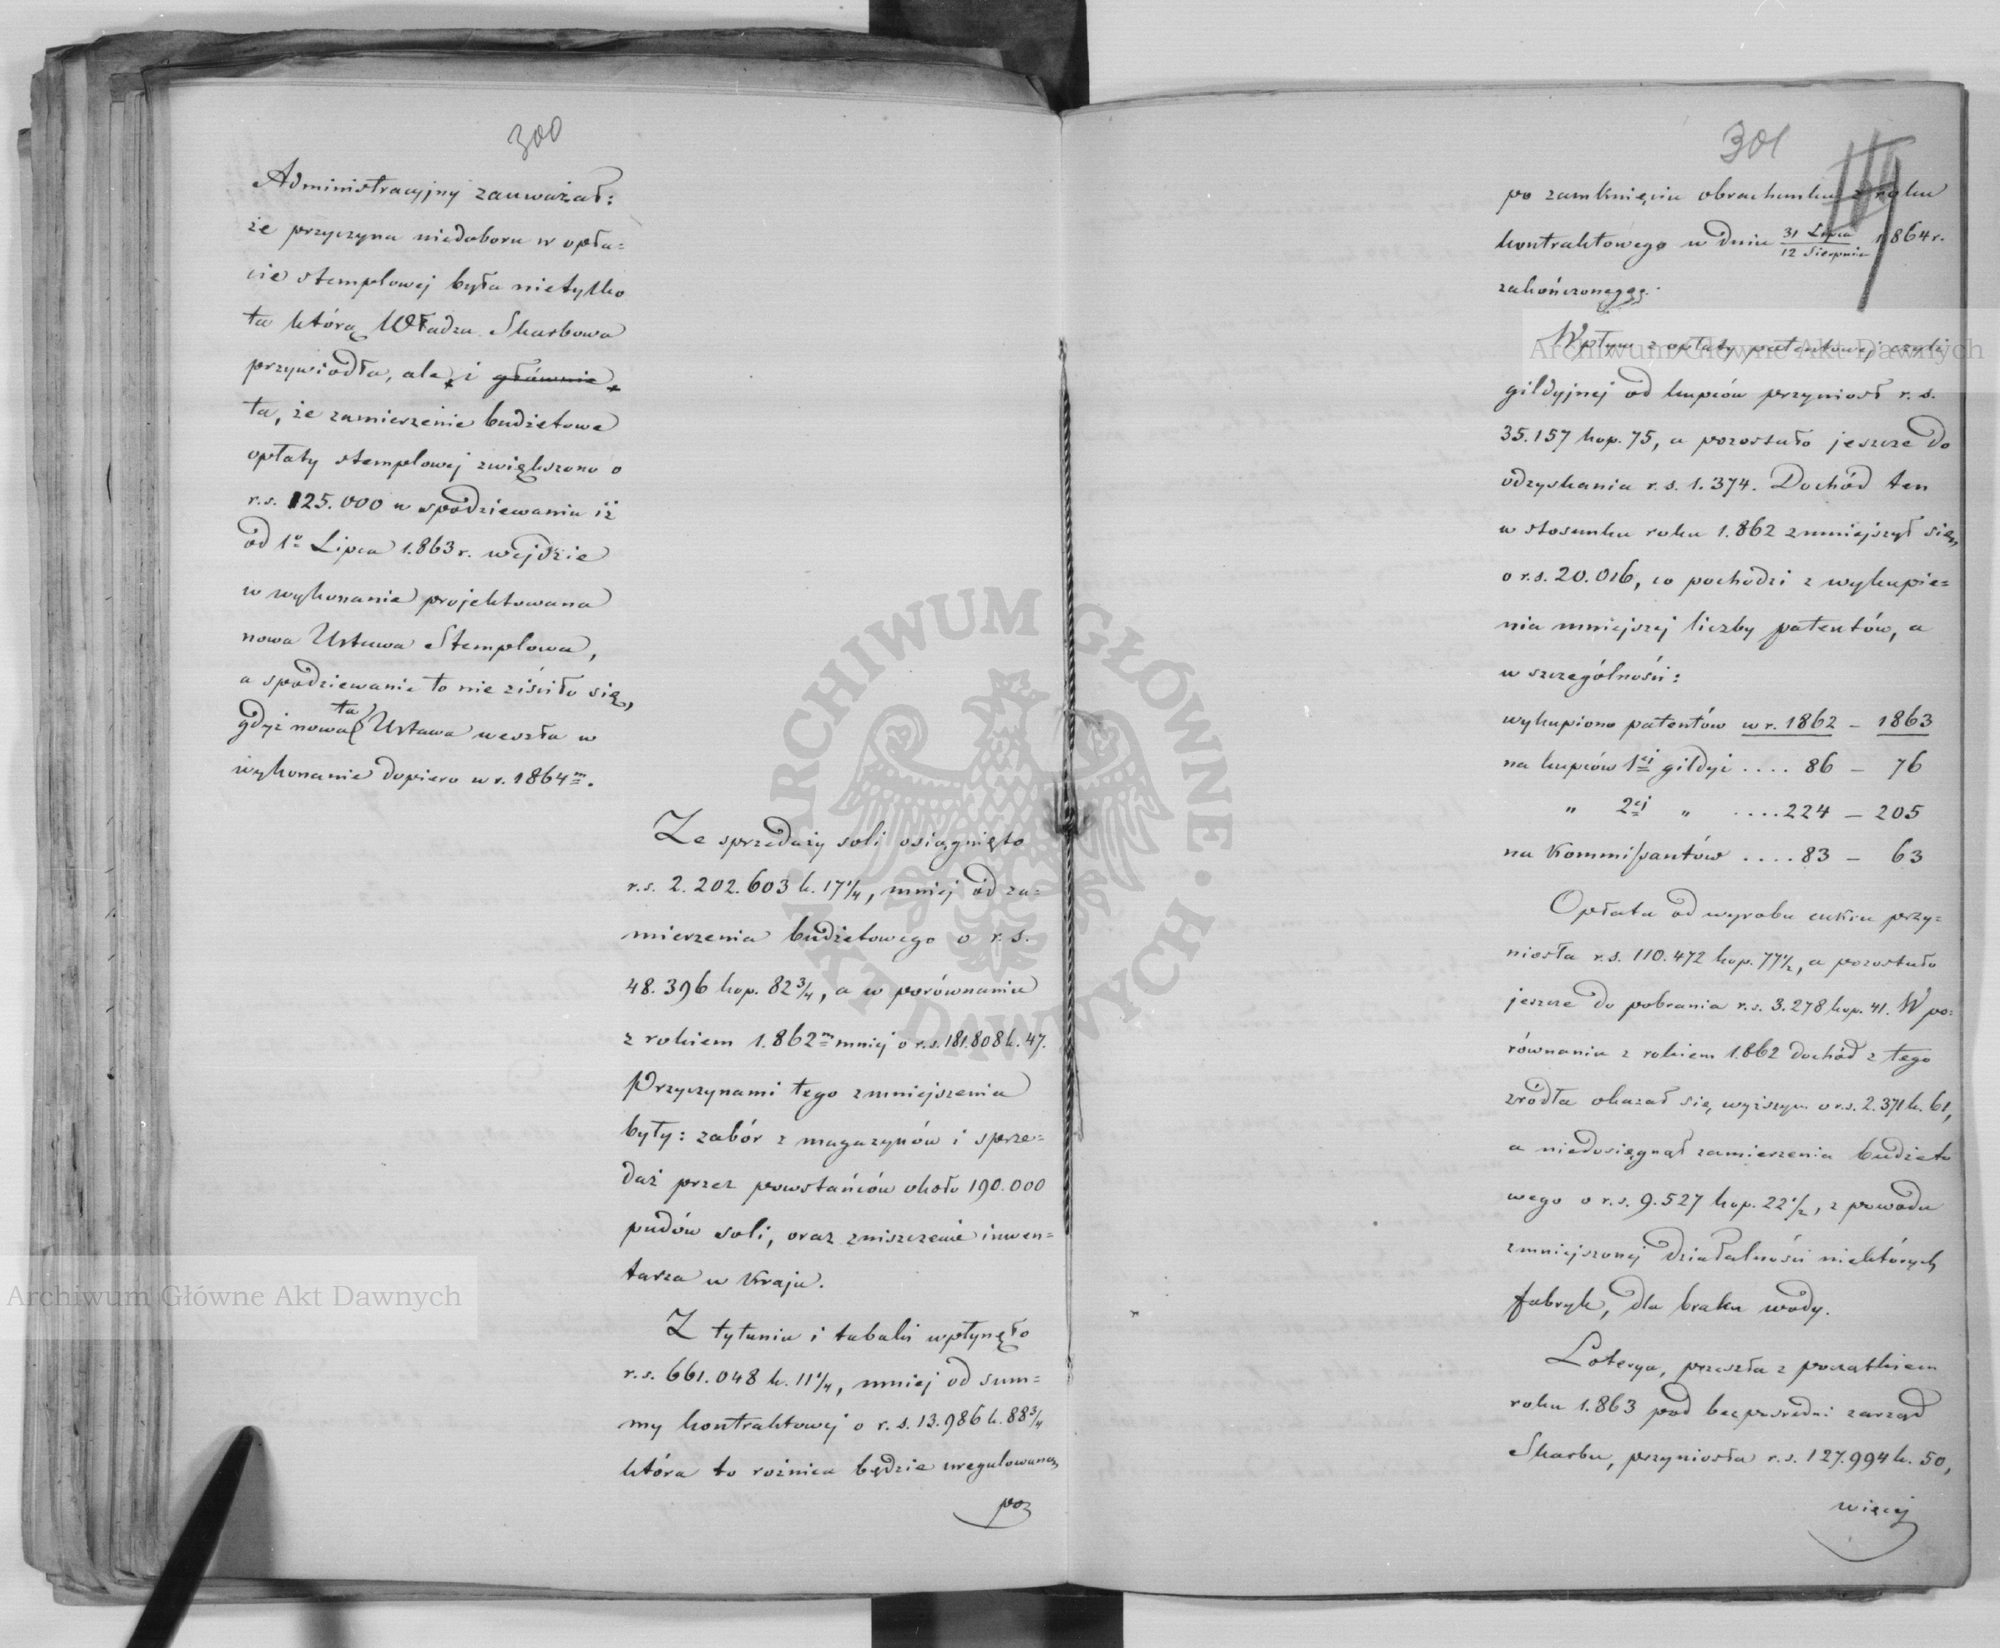 300
Administracyjny zauważał:
że przyczyna niedoboru w opła=
cie stemplowej była nietylko
ta którą Władza Skarbowa
przywiodła, ale i głównie
ta, że zamierzenie budżetowe
opłaty stemplowej zwiększono o
r.s. 125.000 w spodziewaniu iż
od 1º Lipca 1.863 r. wejdzie
w wykonanie projektowana
nowa Ustawa Stemplowa,
a spodziewanie to nie ziściło się,
gdyż nowa ta Ustawa weszła w
wykonanie dopiero w r. 1864m.
Ze sprzedaży soli osiągnięto
r.s. 2.202.603 k. 17 1/4, mniej od za=
mierzenia budżetowego o r.s.
48.396 kop. 82 3/4, a w porównaniu
z rokiem 1.862m mniej o r.s. 181.808 k. 47.
Przyczynami tego zmniejszenia
były: zabór z magazynów i sprze=
daż przez powstańców około 190.000
pudów soli, oraz zniszczenie inwen=
tarza w Kraju.
Z tytuniu i tabaki wpłynęło
r.s. 661.048 k. 11 1/4, mniej od sum=
my kontraktowej o r.s. 13.986 k. 88 3/4
która to rożnica będzie uregulowaną,
po
301
po zamknięciu obrachunku z roku
kontraktowego w dniu 31 Lipca / 12 Sierpnia 1864 r.
zakończonego.
Wpływ z opłaty patentowej czyli
gildyjnej od kupców przyniosł r.s.
35.157 kop. 75, a pozostało jeszcze do
odzyskania r.s. 1.374. Dochód ten
w stosunku roku 1.862 zmniejszył się,
o r.s. 20.016, co pochodzi z wykupie=
nia mniejszej liczby patentów, a
w szczególności:
wykupiono patentów w r. 1862 – 1863
na kupców 1ej gildyi .... 86 – 76
" 2ej " .... 224 – 205
na Kommissantów .... 83 – 63
Opłata od wyrobu cukru przy=
niosła r.s. 110.472 kop. 77 1/2, a pozostało
jeszcze do pobrania r.s. 3.278 kop. 41. W po=
równaniu z rokiem 1.862 dochód z tego
źródła okazał się, wyższym o r.s. 2.371 k. 61,
a niedosięgnął zamierzenia budżeto
wego o r.s. 9.527 kop. 22 1/2, z powodu
zmniejszonej działalności niektórych
fabryk, dla braku wody.
Loterya, przeszła z początkiem
roku 1.863 pod bezpośredni zarząd
Skarbu, przyniosła r.s. 127.994 k. 50,
więcej
Archiwum Główne Akt Dawnych
Archiwum Główne Akt Dawnych
ARCHIWUM GŁÓWNE AKT DAWNYCH